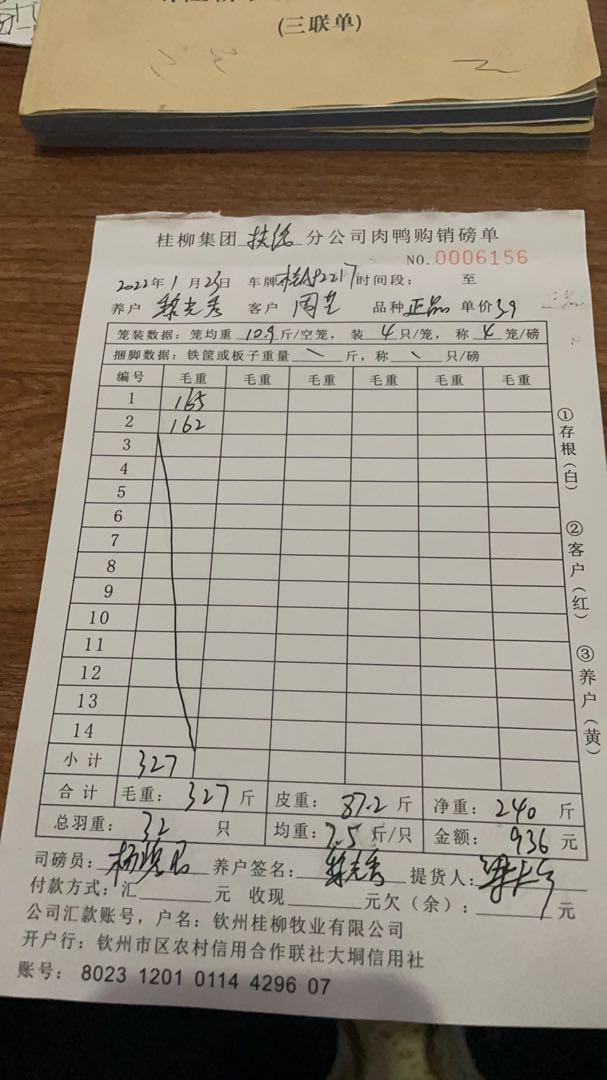 (三联单)
桂柳集团 扶绥 分公司肉鸭购销磅单
NO.0006156
2022年1月23日 车牌 桂A92217 时间段: 至
养户 黎光秀 客户 周 品种 正品 单价 3.9
笼装数据: 笼均重 10.9 斤/空笼, 装 4 只/笼, 称 4 笼/磅
捆脚数据: 铁筐或板子重量 \ 斤, 称 \ 只/磅
编号 毛重 毛重 毛重 毛重 毛重 毛重
1 165
2 162
3
4
5
6
7
8
9
10
11
12
13
14
小计 327
合计 毛重: 327 斤 皮重: 87.2 斤 净重: 240 斤
总羽重: 32 只 均重: 7.5 斤/只 金额: 936 元
司磅员: 杨 养户签名: 黎光秀 提货人:
付款方式: 汇 元 收现 元欠(余): 元
公司汇款账号, 户名: 钦州桂柳牧业有限公司
开户行: 钦州市区农村信用合作联社大垌信用社
账号: 8023 1201 0114 4296 07
①存根(白)
②客户(红)
③养户(黄)